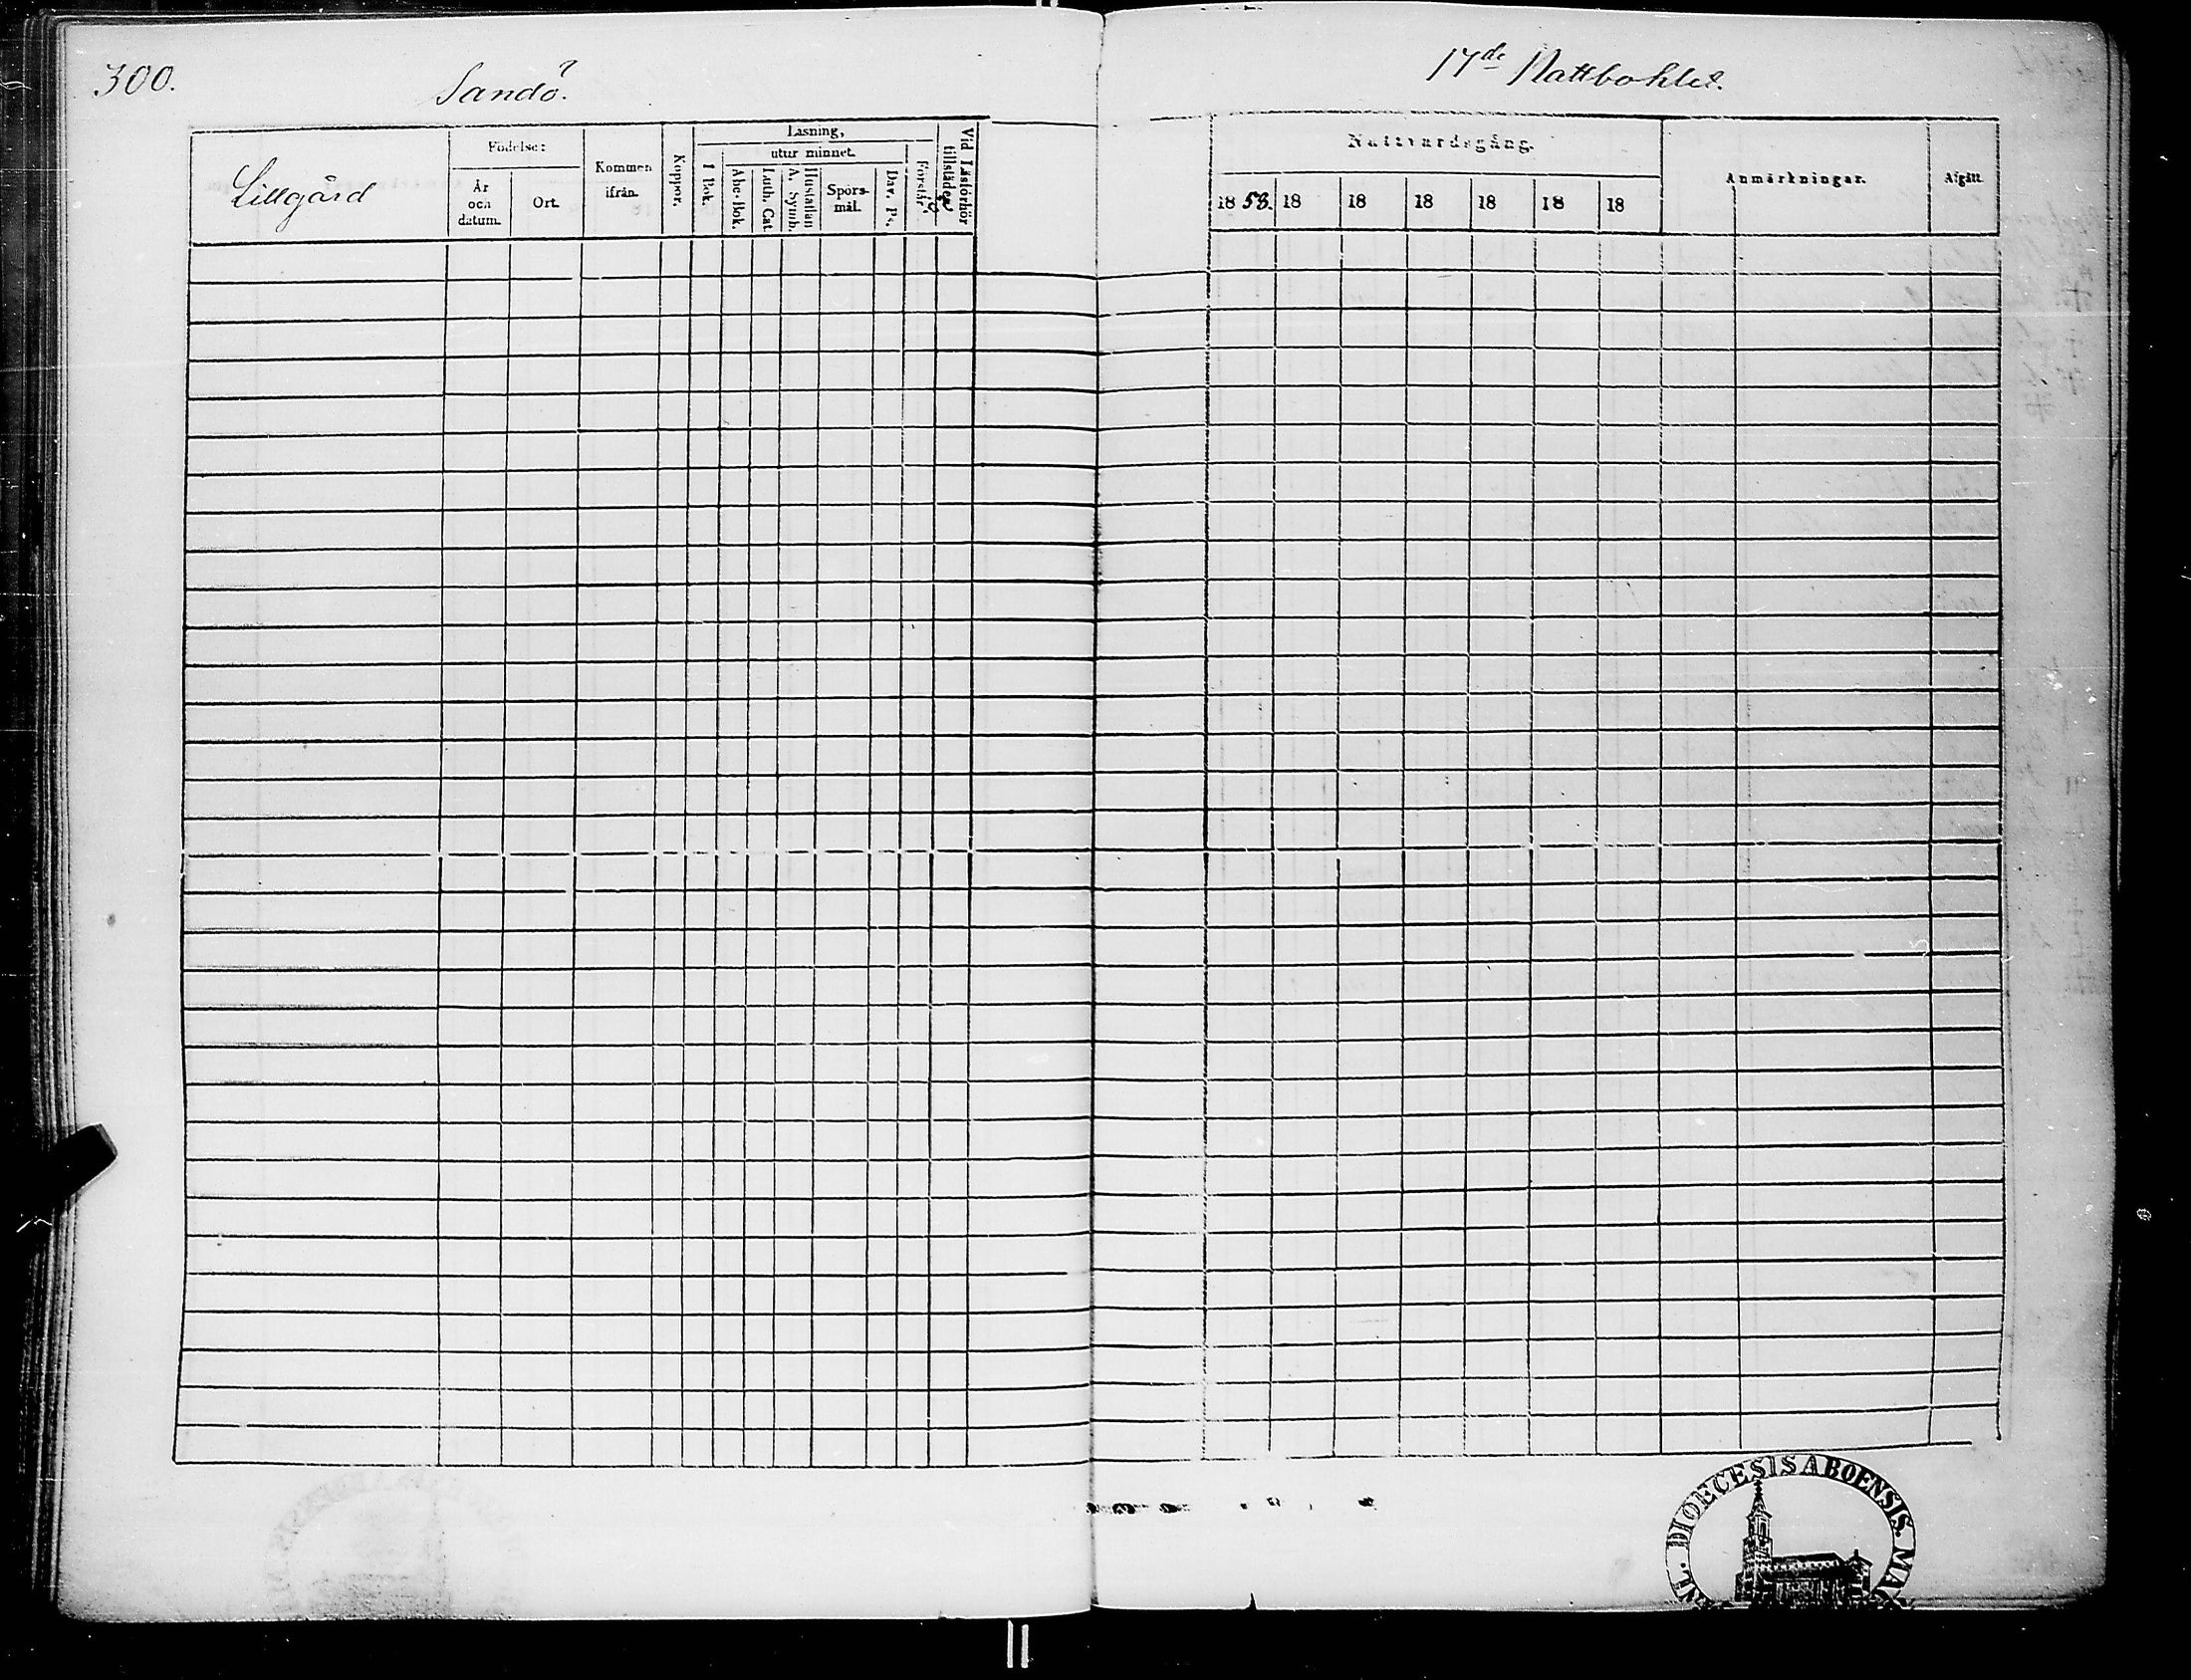 300.
Sandö.
17de Nattbohlet.
Lillgård
Födelse:
År och datum.
Ort.
Kommen ifrån.
Koppor.
Läsning,
utur minnet.
I Bok.
Abc-Bok.
Luth. Cat.
A. Symb. Hustaflan
Spörs-mål.
Dav. Ps.
Förstår.
Vid Läsförhör tillstädes
Nattvardsgång.
1853. 18 18 18 18 18 18
Anmärkningar.
Afgått.
DIOECESIS ABOENSIS.